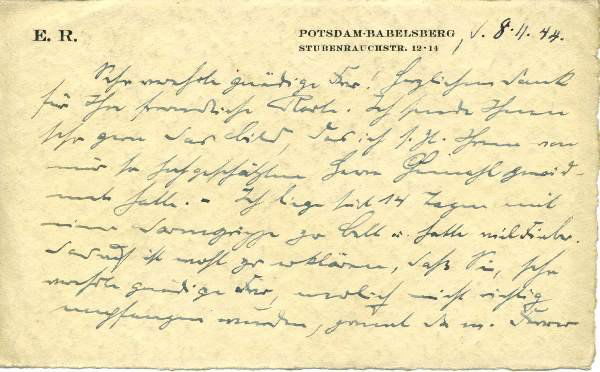 E. R.
POTSDAM-BABELSBERG, d. 8.11.44.
STUBENRAUCHSTR. 12-14
Sehr verehrte gnädige Frau! Herzlichen Dank
für Ihre freundliche Karte. Ich sende Ihnen
sehr gern das Bild, das ich s. Zt. Ihrem von
mir so hochgeschätzten Herrn Gemahl gewid-
met hatte. - Ich liege seit 14 Tagen mit
einer Darmgrippe zu Bett u. hatte viel Fieber.
Daraus ist wohl zu erklären, daß Sie, sehr
verehrte gnädige Frau, neulich nicht richtig
empfangen wurden, zumal da m. Frau